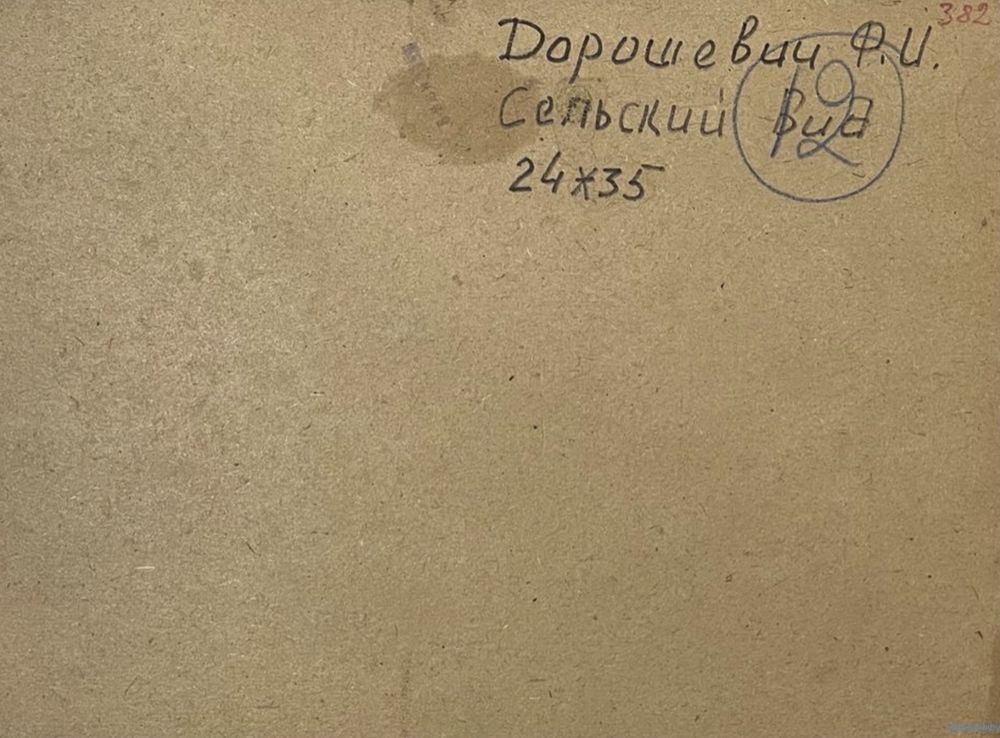 382
Дорошевич Ф.И.
Сельский вид
12
24х35